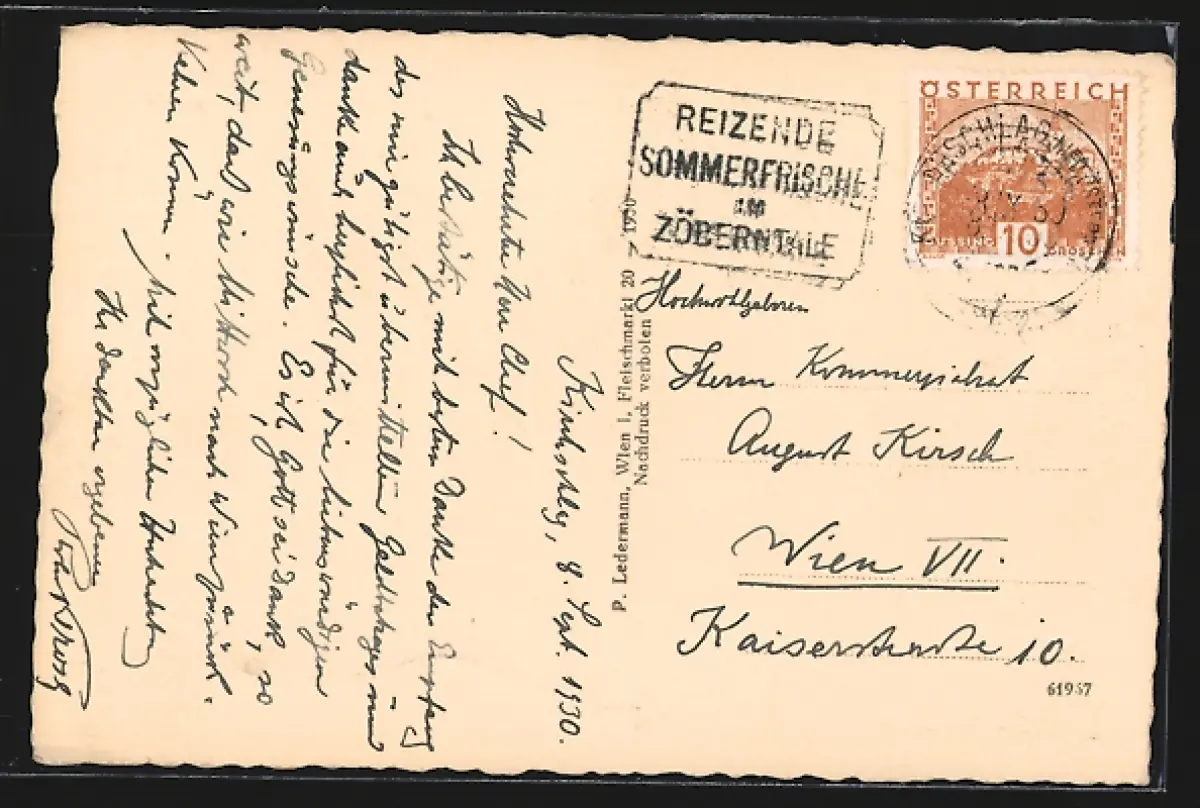 Kirchschlag, 8. Sept. 1930.
Hochverehrter Herr Chef!
Ich bestätige mit bestem Danke den Empfang
des mir gütigst übermittelten Geldbetrages und
danke auch herzlichst für die liebenswürdigen
Genesungswünsche. Es ist, Gott sei Dank, so
weit, daß wir Mittwoch nach Wien zurück-
kehren können. Mit vorzüglicher Hochachtung
Ihr dankbar ergebener
P. Ledermann, Wien I, Fleischmarkt 20 1930
Nachdruck verboten
REIZENDE
SOMMERFRISCHE
IM
ZÖBERNTALE
ÖSTERREICH
10
GROSCHEN
Hochwohlgeboren
Herrn Kommerzialrat
August Kirsch
Wien VII.
Kaiserstraße 10.
61957